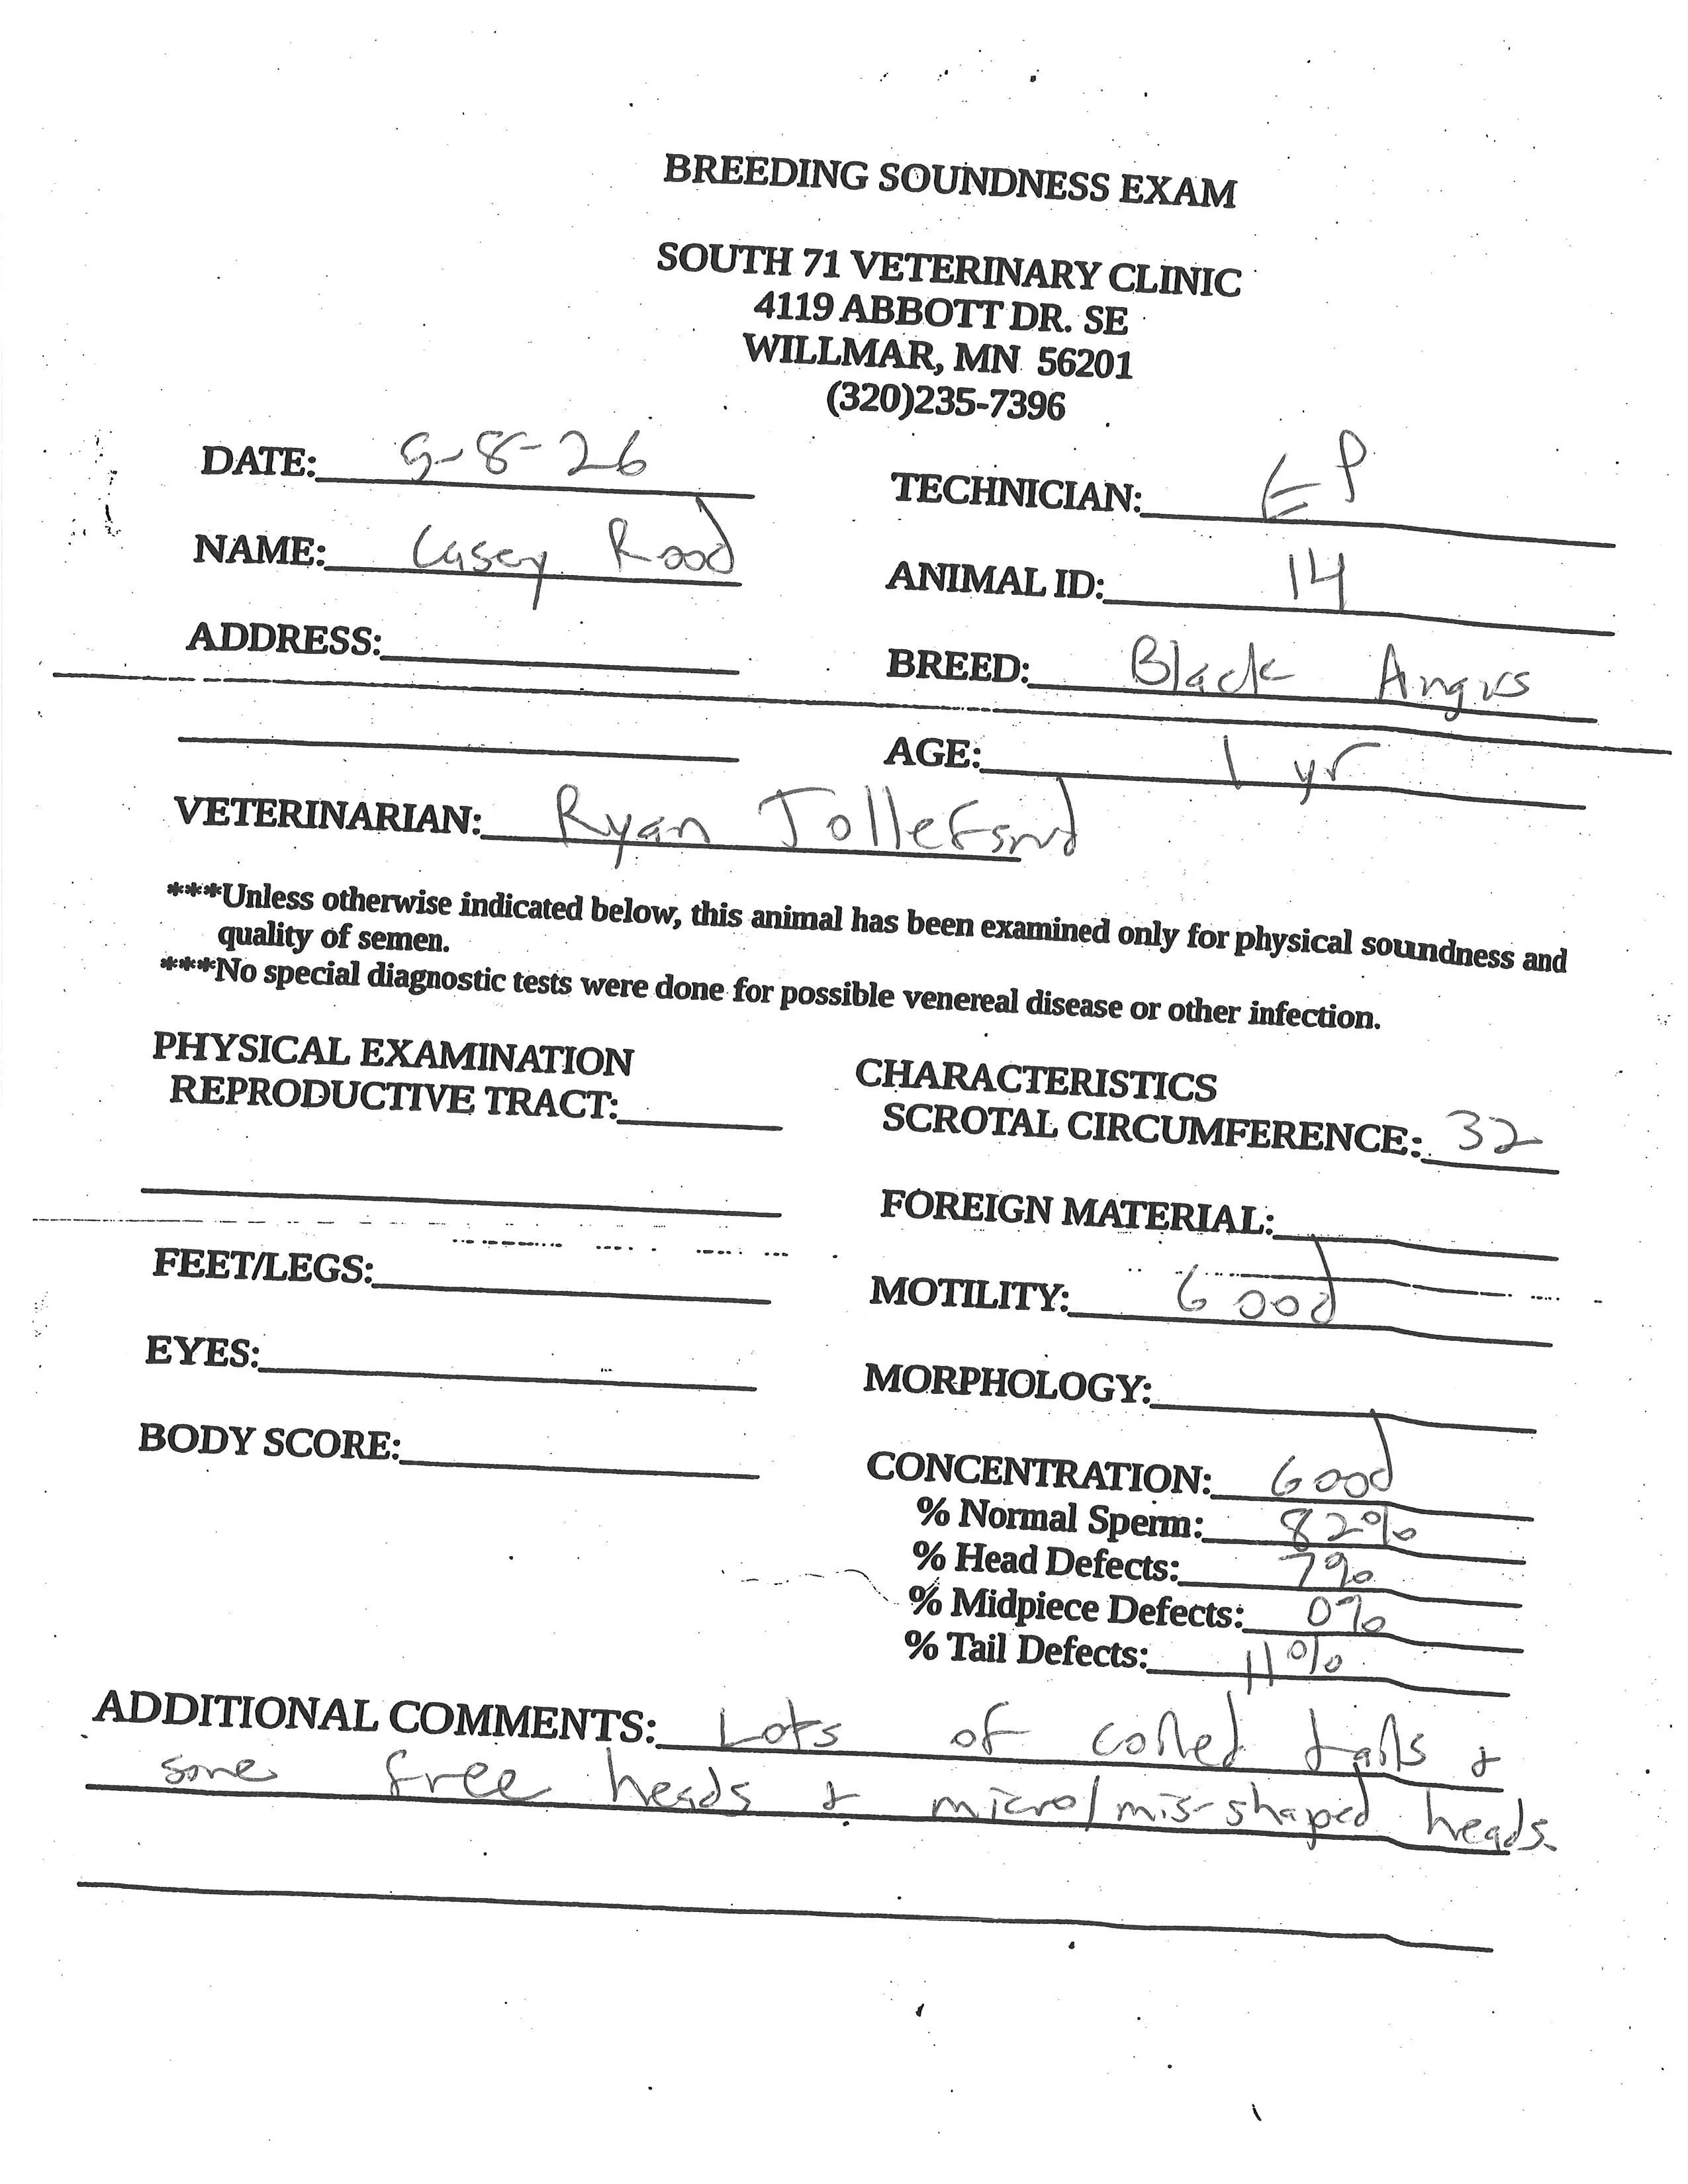 BREEDING SOUNDNESS EXAM
SOUTH 71 VETERINARY CLINIC
4119 ABBOTT DR. SE
WILLMAR, MN 56201
(320)235-7396
DATE: 5-8-26
TECHNICIAN: EP
NAME: Casey Rood
ANIMAL ID: 14
ADDRESS:
BREED: Black Angus
AGE: 1 yr
VETERINARIAN: Ryan
***Unless otherwise indicated below, this animal has been examined only for physical soundness and
quality of semen.
***No special diagnostic tests were done for possible venereal disease or other infection.
PHYSICAL EXAMINATION
REPRODUCTIVE TRACT:
CHARACTERISTICS
SCROTAL CIRCUMFERENCE: 32
FOREIGN MATERIAL:
FEET/LEGS:
MOTILITY: Good
EYES:
MORPHOLOGY:
BODY SCORE:
CONCENTRATION: Good
% Normal Sperm: 82%
% Head Defects: 7%
% Midpiece Defects: 0%
% Tail Defects: 11%
ADDITIONAL COMMENTS: Lots of coiled tails &
some free heads & micro/mis-shaped heads.